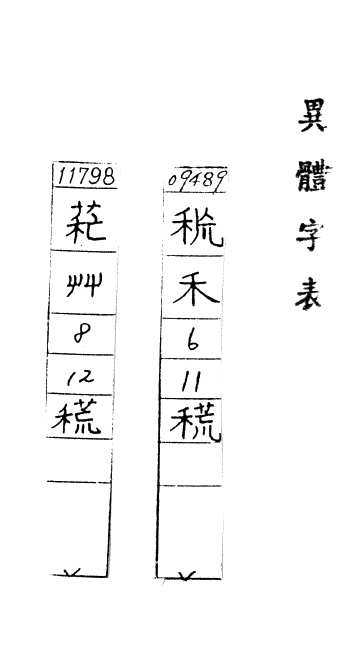 異體字表
09489
禾
6
11
䅣
11798
艸
8
12
䅣